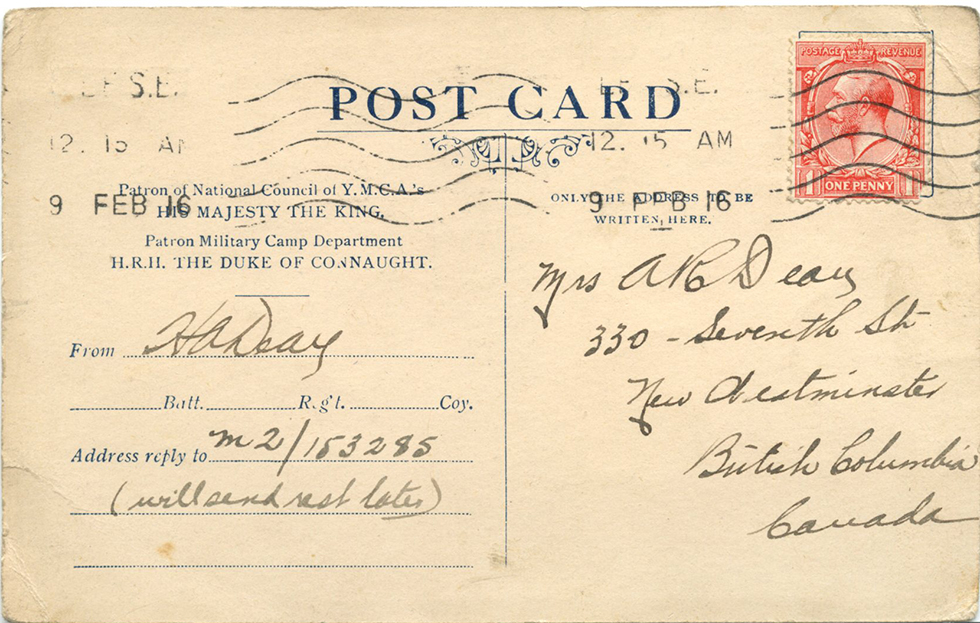 S.E.
12. 15 AM
9 FEB 16
POST CARD
S.E.
12. 15 AM
9 FEB 16
POSTAGE REVENUE
ONE PENNY
Patron of National Council of Y.M.C.A.'s
HIS MAJESTY THE KING.
Patron Military Camp Department
H.R.H. THE DUKE OF CONNAUGHT.
From H A Deay
Batt. Rg't. Coy.
Address reply to M2/153285
(will send rest later)
ONLY THE ADDRESS TO BE
WRITTEN HERE.
Mrs A R Deay
330 - Seventh St
New Westminster
British Columbia
Canada